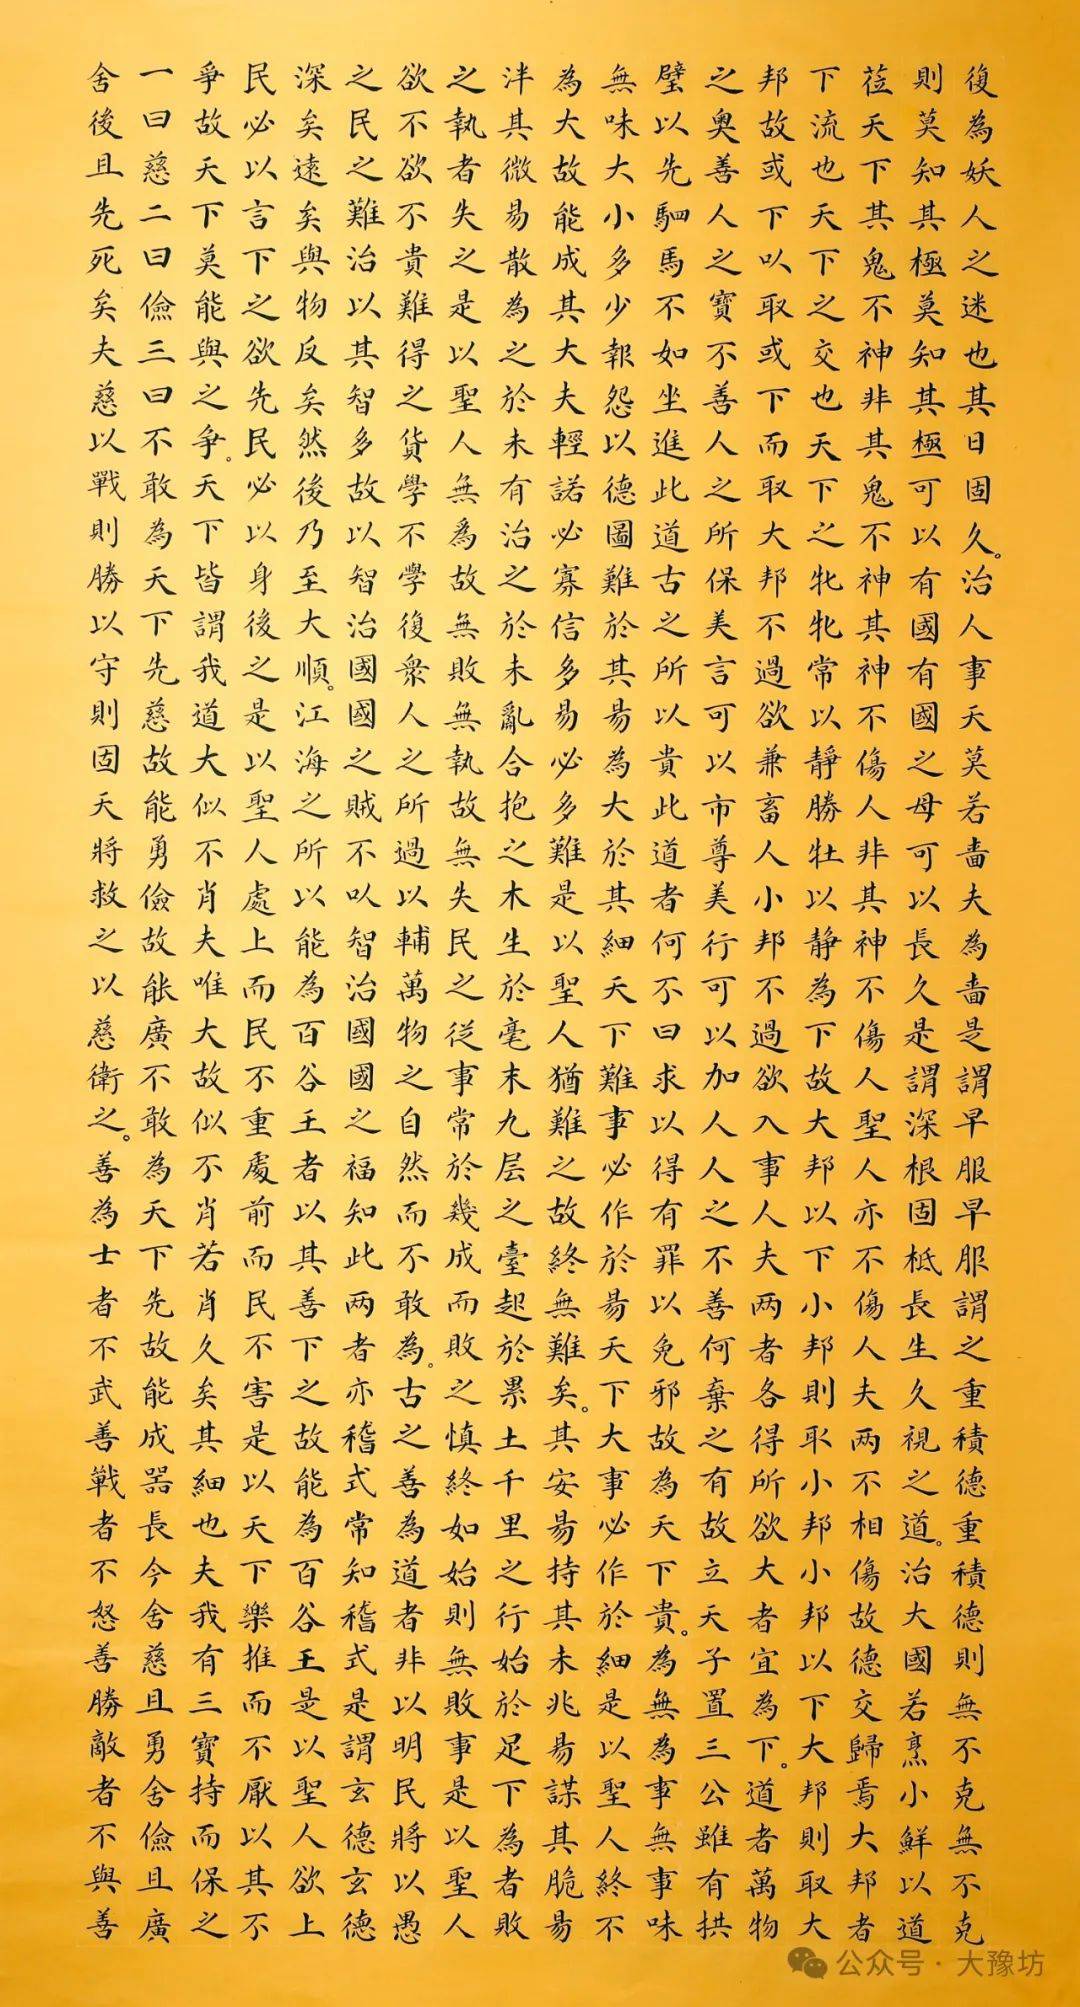 復為妖人之迷也其日固久。治人事天莫若嗇夫為嗇是謂早服早服謂之重積德重積德則無不克無不克
則莫知其極莫知其極可以有國有國之母可以長久是謂深根固柢長生久視之道。治大國若烹小鮮以道
莅天下其鬼不神非其鬼不神其神不傷人非其神不傷人聖人亦不傷人夫两不相傷故德交歸焉大邦者
下流也天下之交也天下之牝牝常以靜勝牡以静為下故大邦以下小邦則取小邦小邦以下大邦則取大
邦故或下以取或下而取大邦不過欲兼畜人小邦不過欲入事人夫两者各得所欲大者宜為下。道者萬物
之奥善人之寶不善人之所保美言可以市尊美行可以加人人之不善何棄之有故立天子置三公雖有拱
璧以先駟馬不如坐進此道古之所以貴此道者何不曰求以得有罪以免邪故為天下貴。為無為事無事味
無味大小多少報怨以德圖難於其易為大於其細天下難事必作於易天下大事必作於細是以聖人終不
為大故能成其大夫輕諾必寡信多易必多難是以聖人猶難之故終無難矣。其安易持其未兆易謀其脆易
泮其微易散為之於未有治之於未亂合抱之木生於毫末九层之臺起於累土千里之行始於足下為者敗
之執者失之是以聖人無為故無敗無執故無失民之從事常於幾成而敗之慎終如始則無敗事是以聖人
欲不欲不貴難得之貨學不學復衆人之所過以輔萬物之自然而不敢為。古之善為道者非以明民將以愚
之民之難治以其智多故以智治國國之賊不以智治國國之福知此两者亦稽式常知稽式是謂玄德玄德
深矣遠矣與物反矣然後乃至大順。江海之所以能為百谷王者以其善下之故能為百谷王是以聖人欲上
民必以言下之欲先民必以身後之是以聖人處上而民不重處前而民不害是以天下樂推而不厭以其不
爭故天下莫能與之爭。天下皆謂我道大似不肖夫唯大故似不肖若肖久矣其細也夫我有三寶持而保之
一曰慈二曰儉三曰不敢為天下先慈故能勇儉故能廣不敢為天下先故能成器長今舍慈且勇舍儉且廣
舍後且先死矣夫慈以戰則勝以守則固天將救之以慈衛之。善為士者不武善戰者不怒善勝敵者不與善
公众号·大豫坊